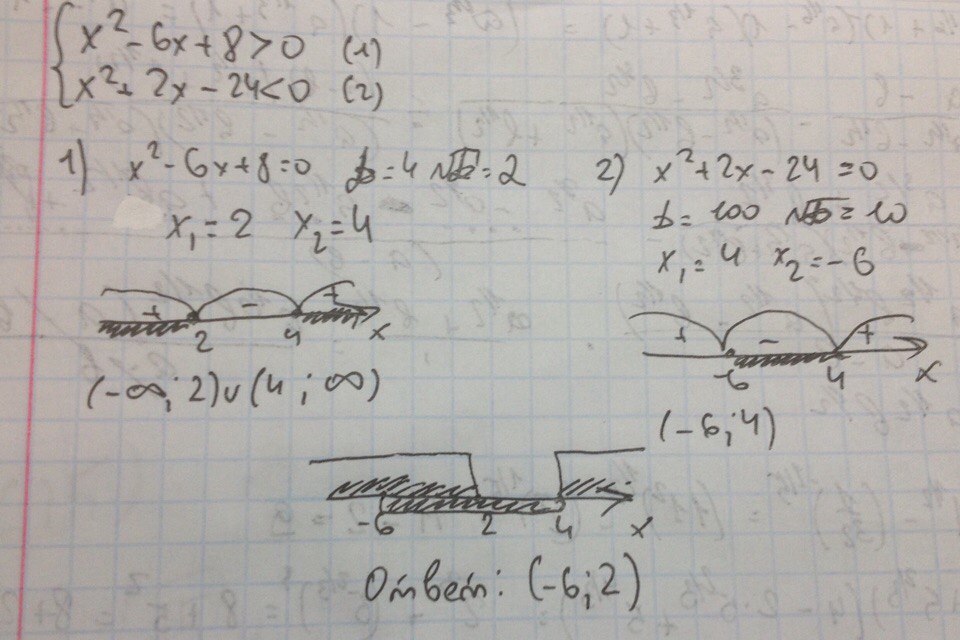 x² - 6x + 8 > 0 (1)
x² + 2x - 24 < 0 (2)
1) x² - 6x + 8 = 0 D = 4 √D = 2
x₁ = 2 x₂ = 4
+ - +
2 4 x
(-∞; 2) ∪ (4; ∞)
2) x² + 2x - 24 = 0
D = 100 √D = 10
x₁ = 4 x₂ = -6
+ - +
-6 4 x
(-6; 4)
-6 2 4 x
Ответ: (-6; 2)